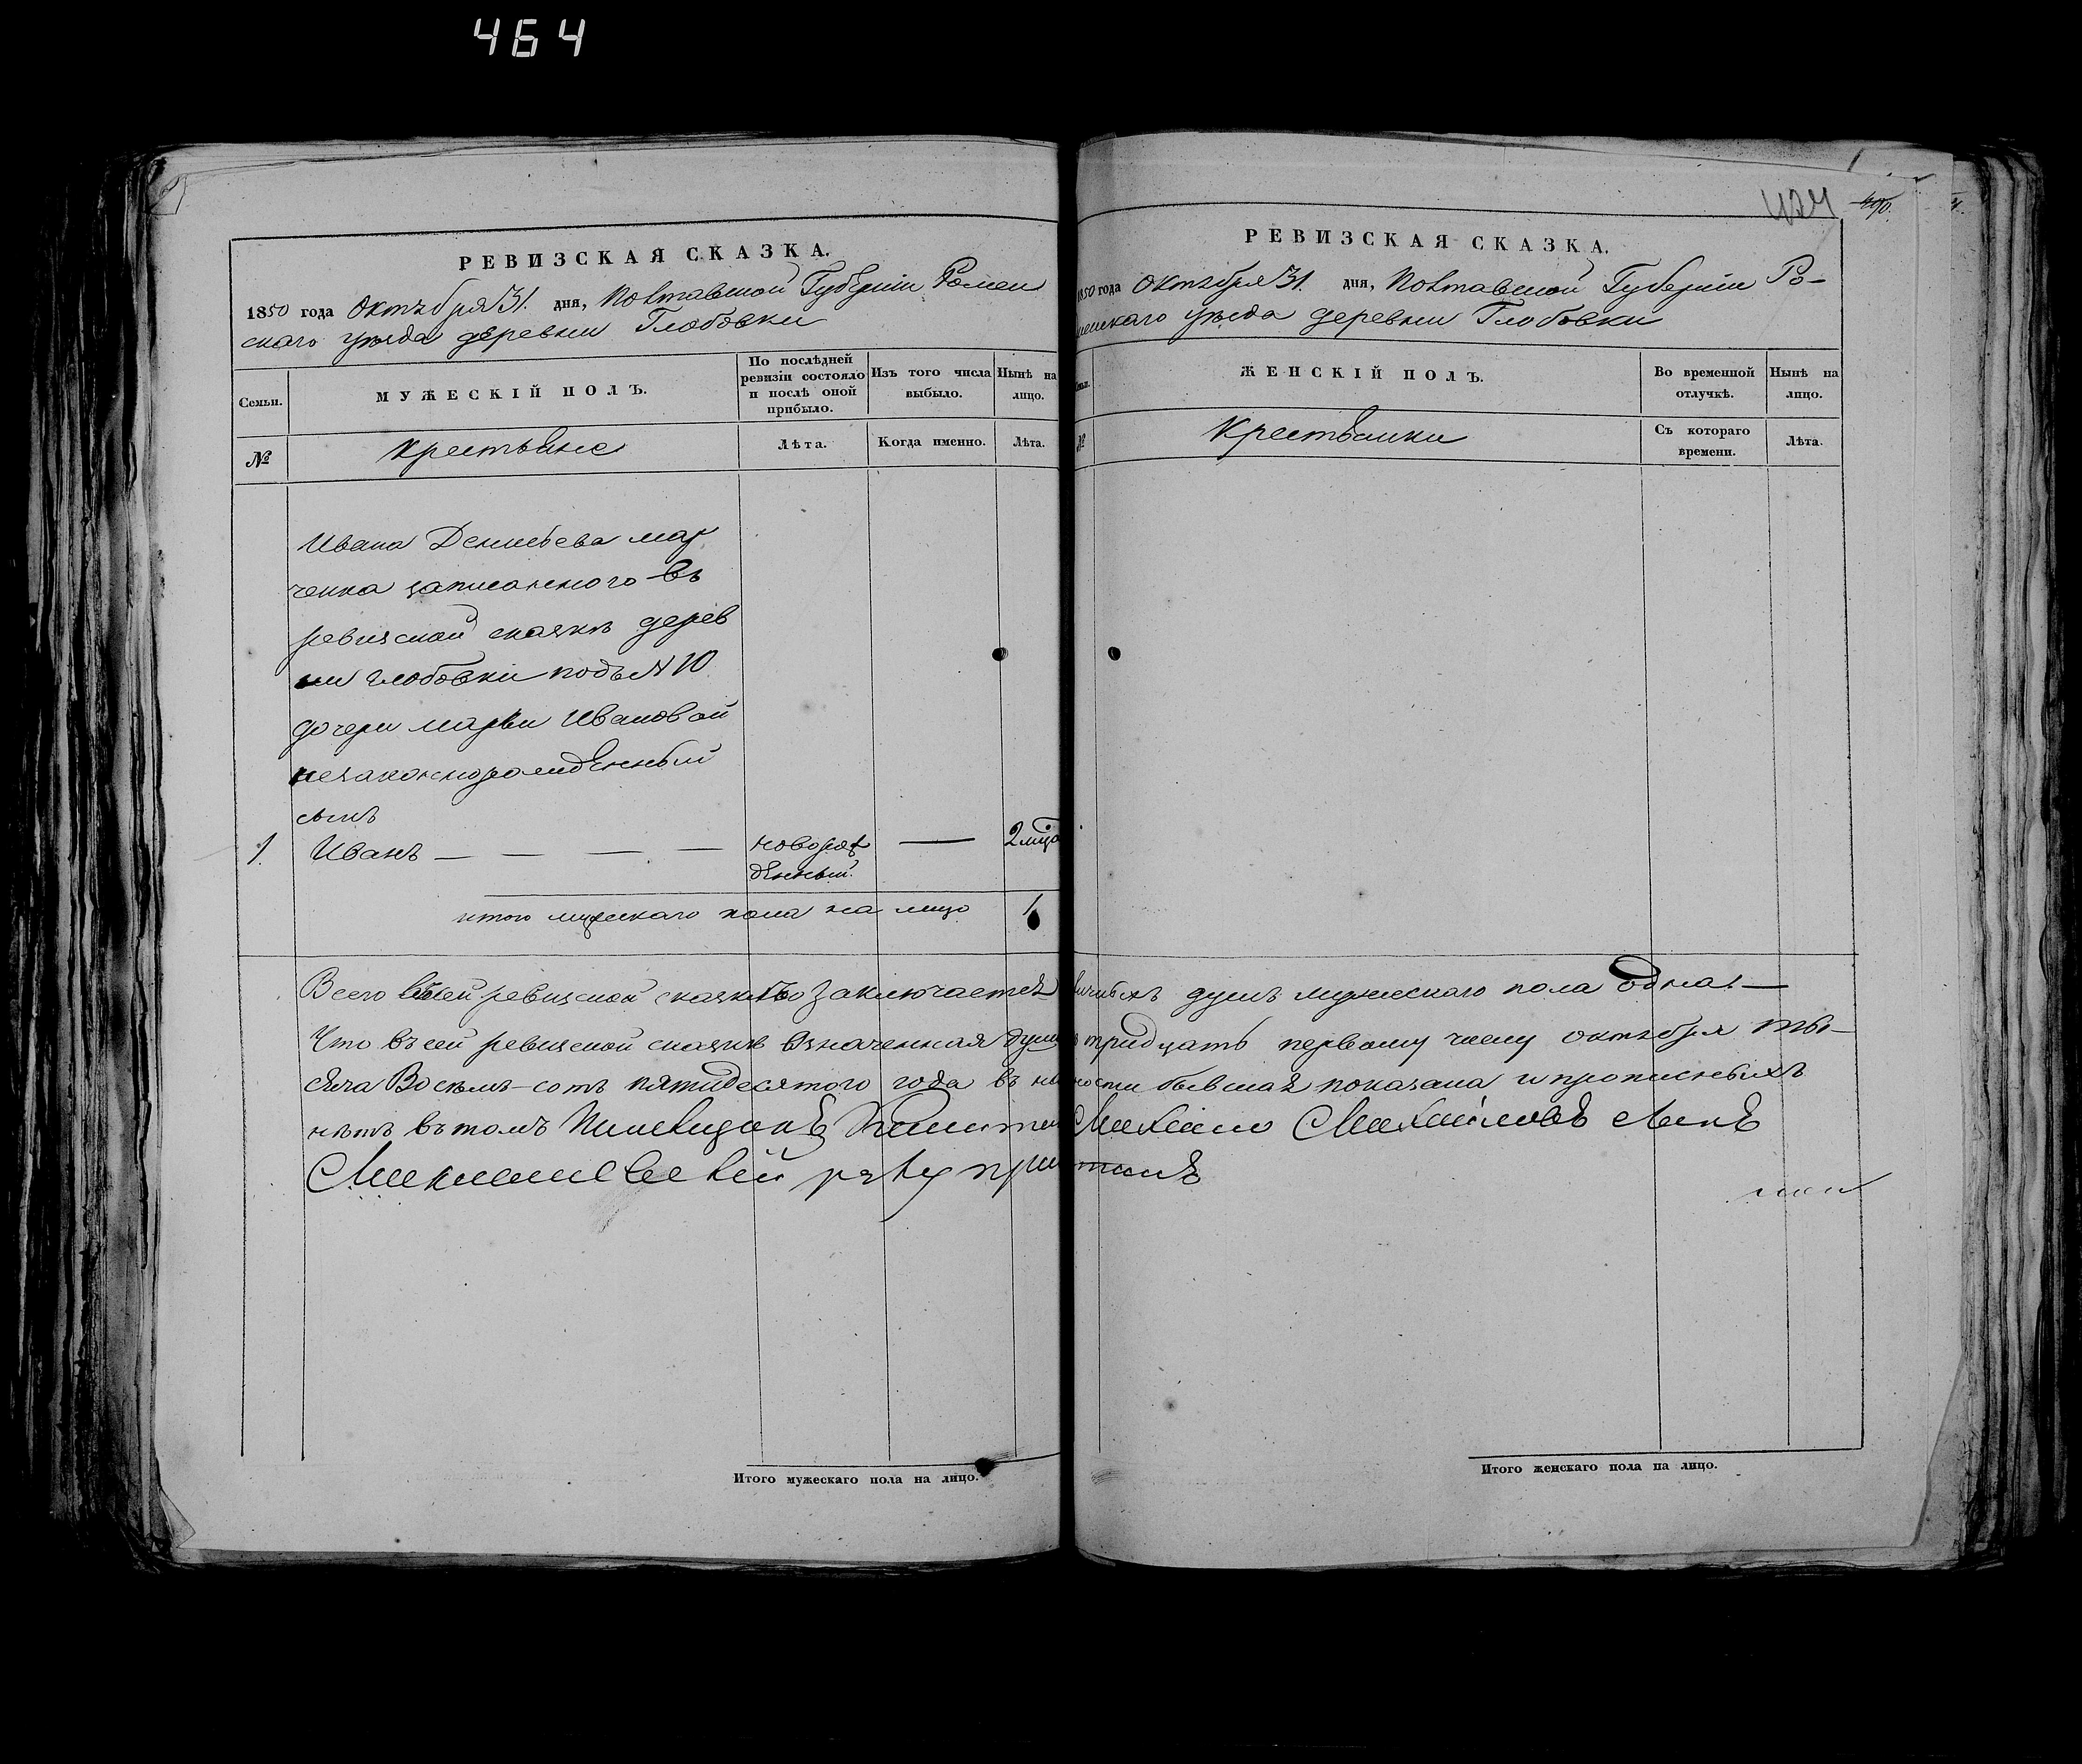 464
424
490.
РЕВИЗСКАЯ СКАЗКА.
1850 года Октября 31. дня, Полтавской Губерніи Ромен
скаго уезда деревни Глобовки
Семьи.
МУЖЕСКІЙ ПОЛЪ.
По послѣдней ревизіи состояло и послѣ оной прибыло.
Изъ того числа выбыло.
Нынѣ на лицо.
№
Крестьяне
Лѣта.
Когда именно.
Лѣта.
Ивана Дементьева мар
ченка записанного въ
ревизской сказкѣ дерев
ни глобовки подъ № 10
дочери марьи Ивановой
незаконнорожденный
сынъ
1. Иванъ — — — — новорож — 2 мца
денный.
итого мужескаго пола на лицо 1
РЕВИЗСКАЯ СКАЗКА.
1850 года Октября 31. дня, Полтавской Губерніи Ро-
менскаго уезда деревни Глобовки
ЖЕНСКІЙ ПОЛЪ.
Во временной отлучкѣ.
Нынѣ на лицо.
№
Крестьянки
Съ котораго времени.
Лѣта.
Всего въ сей ревизской сказкѣ заключается личныхъ душъ мужескаго пола одна. —
Что въ сей ревизской сказкѣ означенная душа тридцать первому числу октября ты-
сяча Восемь-сотъ пятидесятого года въ на ности бывшая показана и прописныхъ
нѣтъ въ томъ Михаило Михайловъ сынъ
руку при
Итого мужескаго пола на лицо.
Итого женскаго пола на лицо.